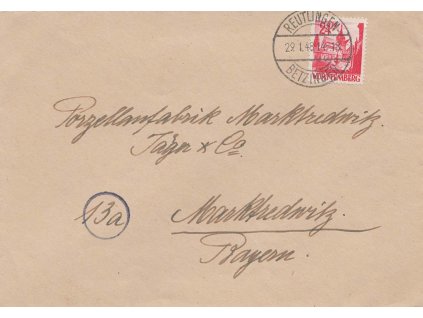 REUTLINGEN
29.1.48
BETZINGEN
WÜRTTEMBERG
Porzellanfabrik Marktredwitz
Jäger & Co.
13a
Marktredwitz.
Bayern.